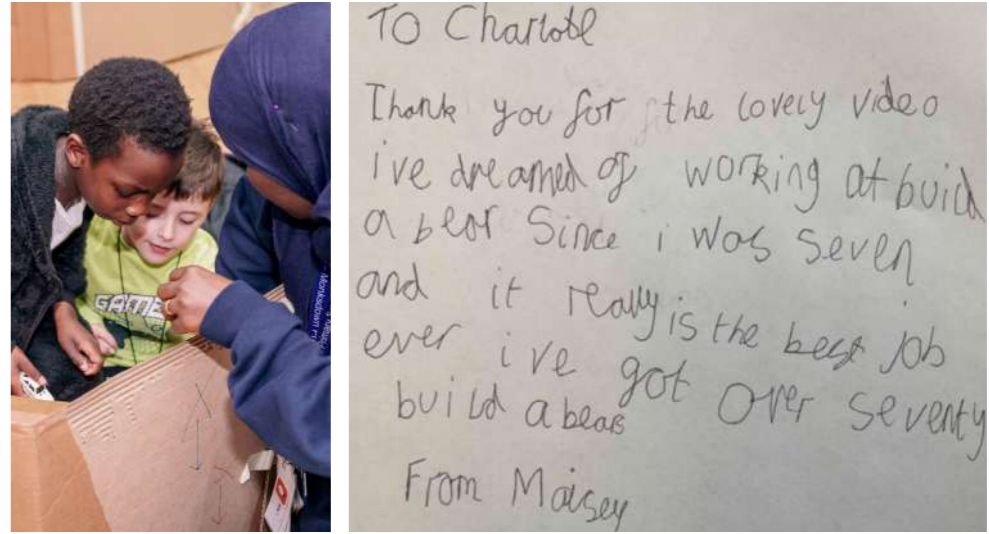 GAME
Monksdown
To Charlotte
Thank you for the lovely video
i've dreamed of working at build
a bear Since i was seven
and it really is the best job
ever i've got over seventy
build a bears
From Maisey